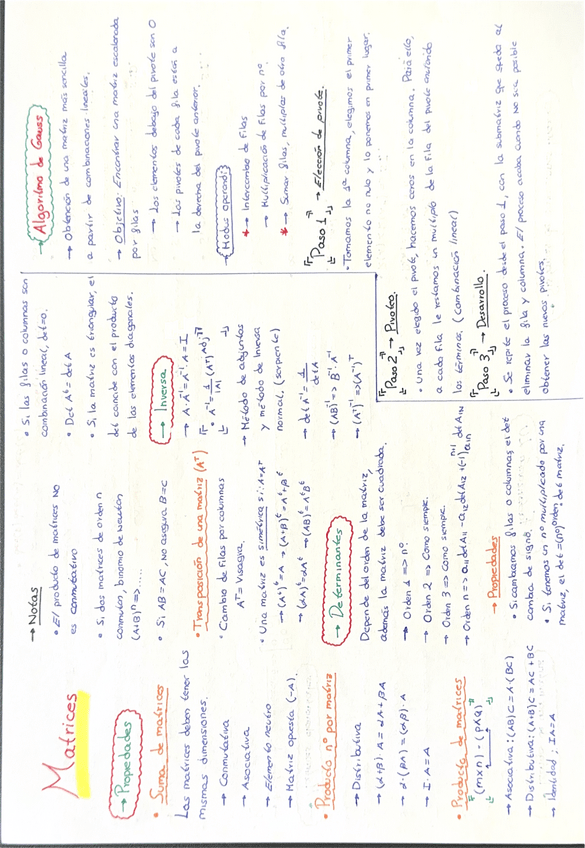 Matrices
→ Propiedades
• Suma de matrices
Las matrices deben tener las
mismas dimensiones.
→ Conmutativa
→ Asociativa
→ Elemento neutro
→ Matriz opuesta (-A).
• Producto nº por matriz
→ Distributiva
→ (α+β)·A = αA + βA
→ α·(βA) = (αβ)·A
→ I·A = A
• Producto de matrices
(m×n)·(p×q)
→ Asociativa: (AB)C = A·(BC)
→ Distributiva: (A+B)C = AC + BC
→ Identidad: IA = A
→ Notas
• El producto de matrices NO
es conmutativo
• Si dos matrices de orden n
conmutan, binomio de Newton
(A+B)ⁿ => .....
• Si AB = AC, no asegura B = C
• Transposición de una matriz (Aᵀ)
• Cambio de Filas por columnas
• Una matriz es simétrica si: A = Aᵀ
→ (Aᵗ)ᵗ = A → (A+B)ᵗ = Aᵗ + Bᵗ
→ (αA)ᵗ = αAᵗ
→ Determinantes
Depende del orden de la matriz,
además la matriz debe ser cuadrada.
→ Orden 1 => nº
→ Orden 2 => Como siempre.
→ Orden 3 => Como siempre.
→ Orden n =>
→ Propiedades
• Si cambiamos filas o columnas, el det
cambia de signo.
• Si tenemos un nº multiplicado por una
matriz, el det = (nº)ᵒʳᵈᵉⁿ · det matriz.
• Si las filas o columnas son
combinación lineal, det = 0.
• Det Aᵗ = det A
• Si la matriz es triangular, el
det coincide con el producto
de los elementos diagonales.
→ Inversa
→ A·A⁻¹ = A⁻¹·A = I
→ Método de adjuntos
y método de inversa
normal. (serpiente)
→ det A⁻¹ = 1/det A
→ (AB)⁻¹ => B⁻¹·A⁻¹
→ (Aᵀ)⁻¹ => (A⁻¹)ᵀ
→ Algoritmo de Gauss
→ Obtención de una matriz más sencilla
a partir de combinaciones lineales.
→ Objetivo: Encontrar una matriz escalonada
por filas
→ Los elementos debajo del pivote son 0
→ Los pivotes de cada fila están a
la derecha del pivote anterior.
→ Modus operandi:
* → Intercambio de Filas
→ Multiplicación de Filas por nº.
* → Sumar filas, multiplos de otra fila.
Paso 1 → Elección de pivote.
• Tomamos la 1ª columna, elegimos el primer
elemento no nulo y lo ponemos en primer lugar.
Paso 2 → Pivoteo.
• Una vez elegido el pivote, hacemos ceros en la columna. Para ello,
a cada fila le restamos un multiplo de la fila del pivote anulando
los términos. (Combinación lineal)
Paso 3 → Desarrollo.
• Se repite el proceso desde el paso 1, con la submatriz que queda al
eliminar la fila y columna. El proceso acaba cuando no sea posible
obtener las nuevos pivotes.